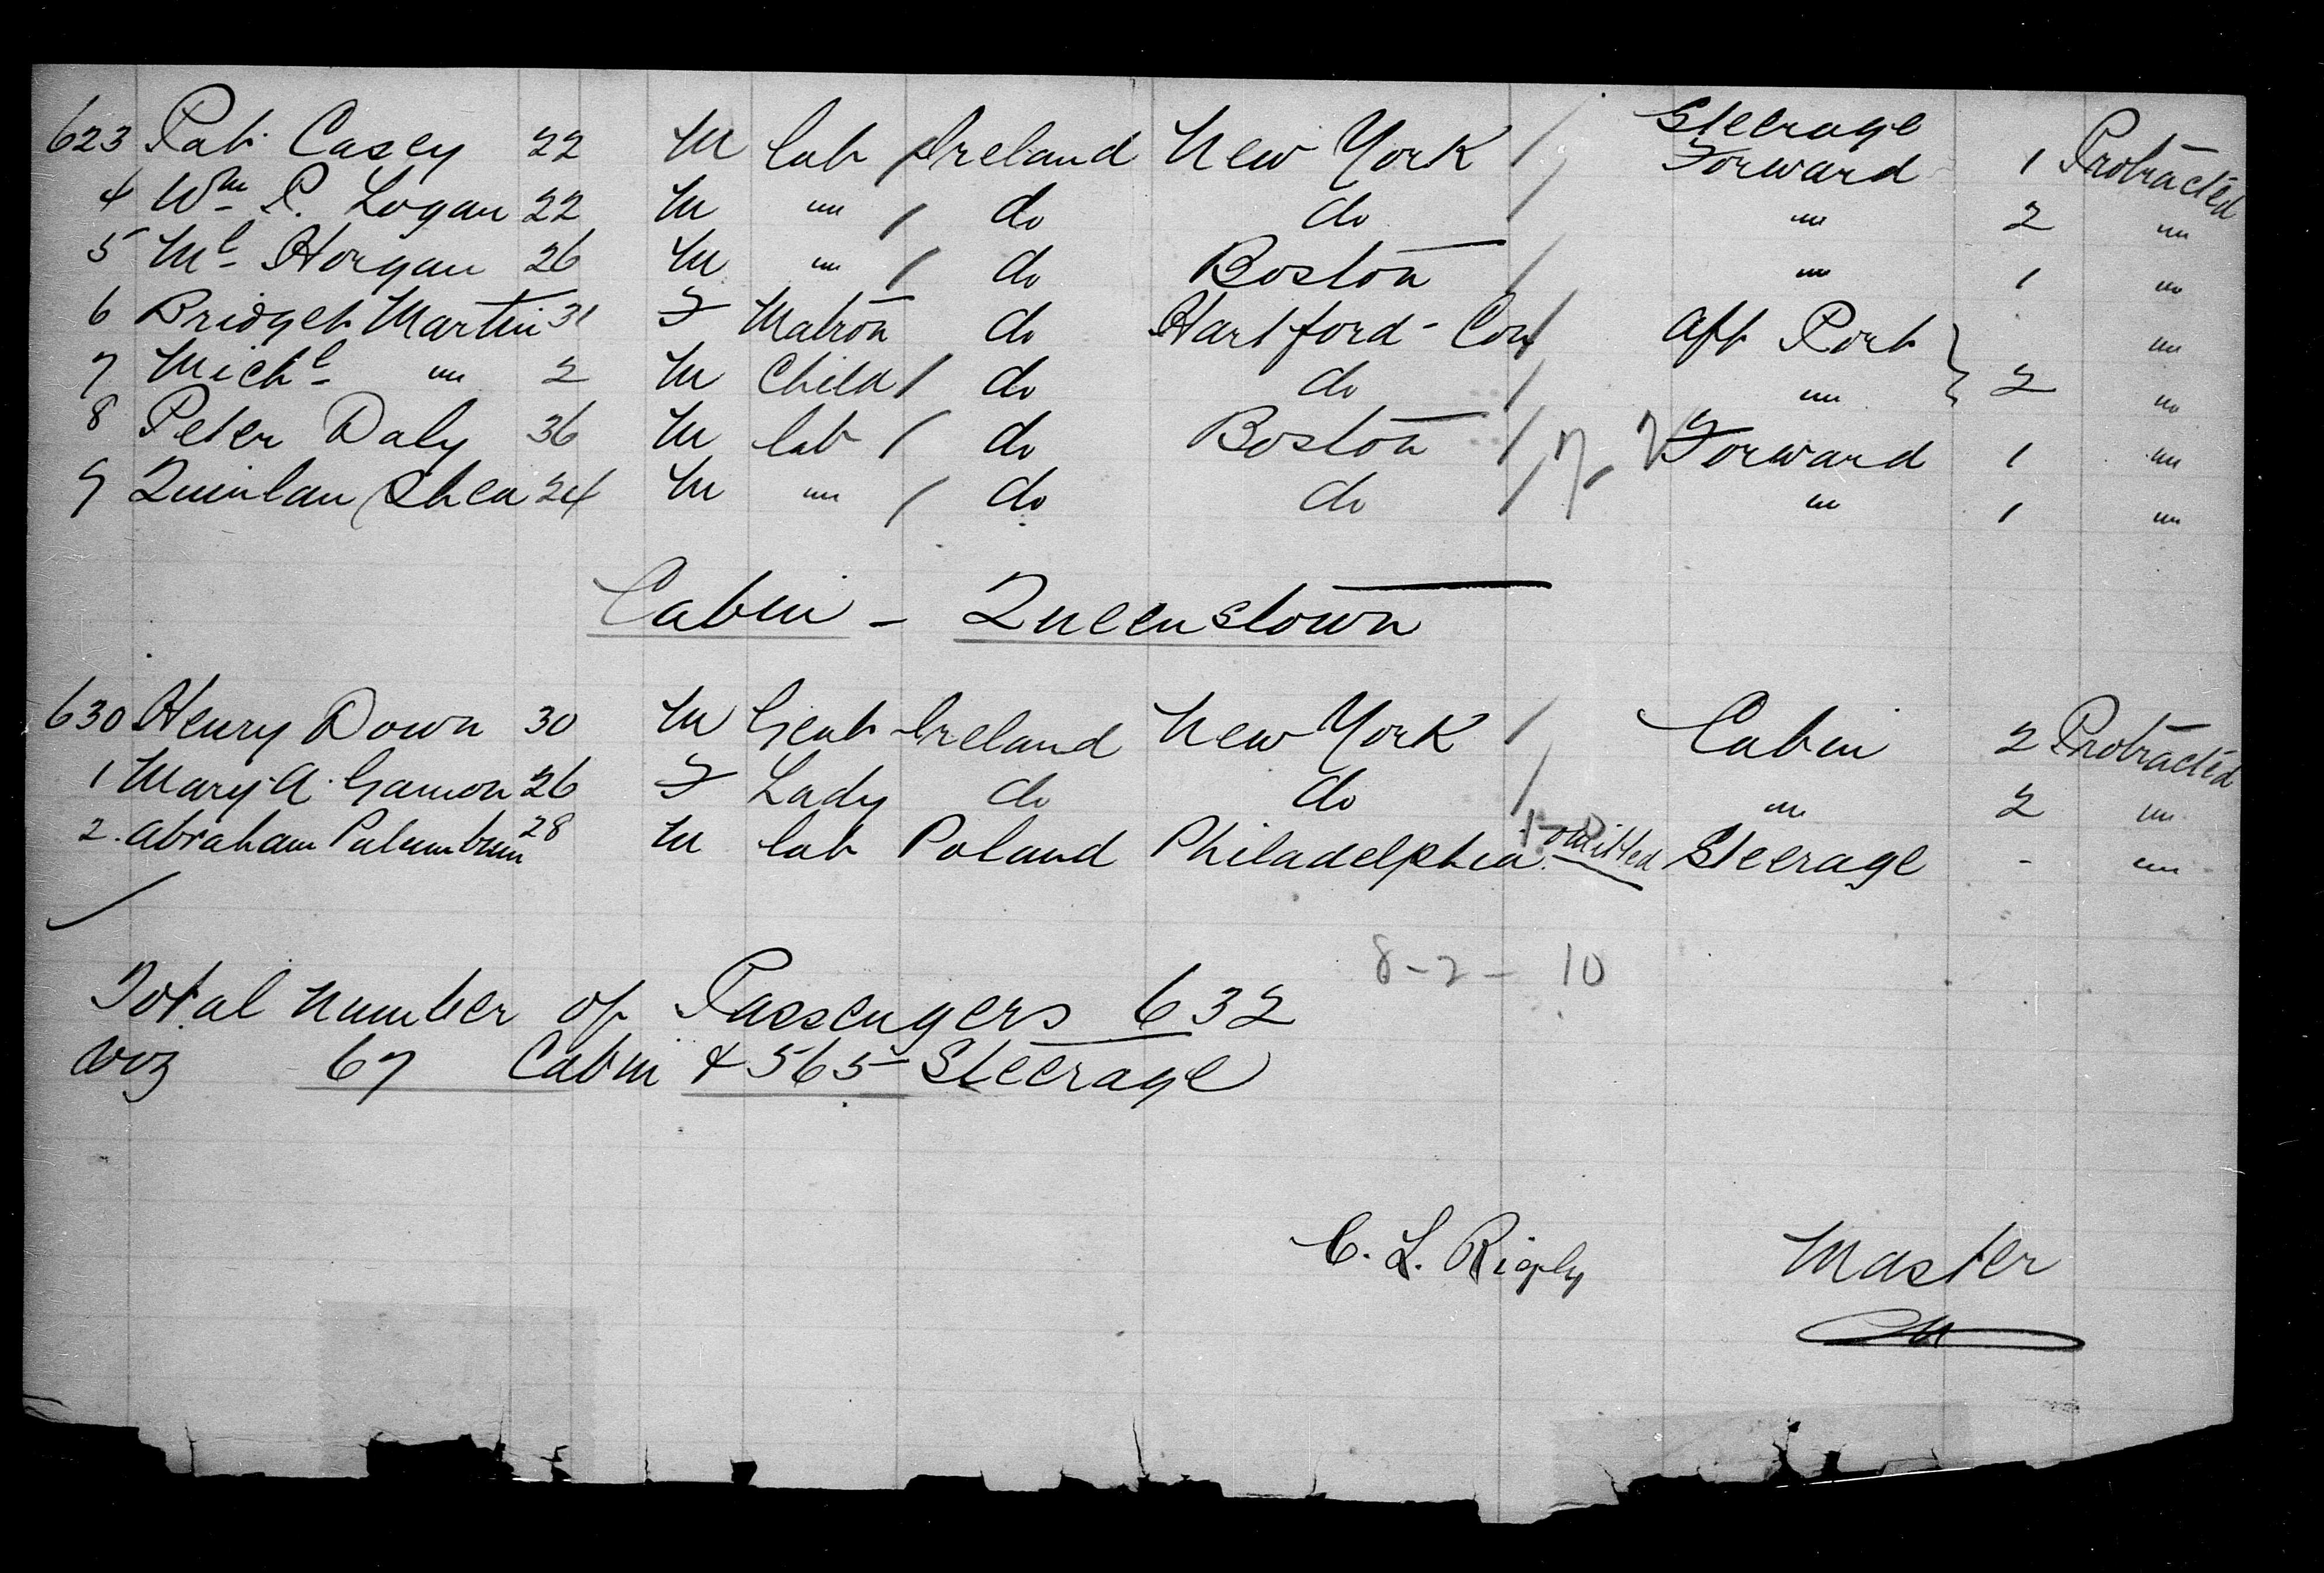 623 Pat Casey 22 M lab / Ireland New York / Steerage Forward 1 Protracted
4 Wm P. Logan 22 M " / do do / " 2 "
5 Ml Horgan 26 M " / do Boston / " 1 "
6 Bridget Martin 31 F Matron do Hartford - Con / Aft Port "
7 Michl " 2 M Child / do do / " } 2 "
8 Peter Daly 36 M lab / do Boston / Forward 1 "
9 Quinlan Shea 24 M " / do do / " 1 "
Cabin - Queenstown
630 Henry Down 30 M Gent Ireland New York / Cabin 2 Protracted
1 Mary A. Gamon 26 F Lady do do / " 2 "
2. Abraham 28 M lab Poland Philadelphia. omitted Steerage - "
8 - 2 - 10
Total number of Passengers 632
viz 67 Cabin & 565 Steerage
C. L. Rigby Master